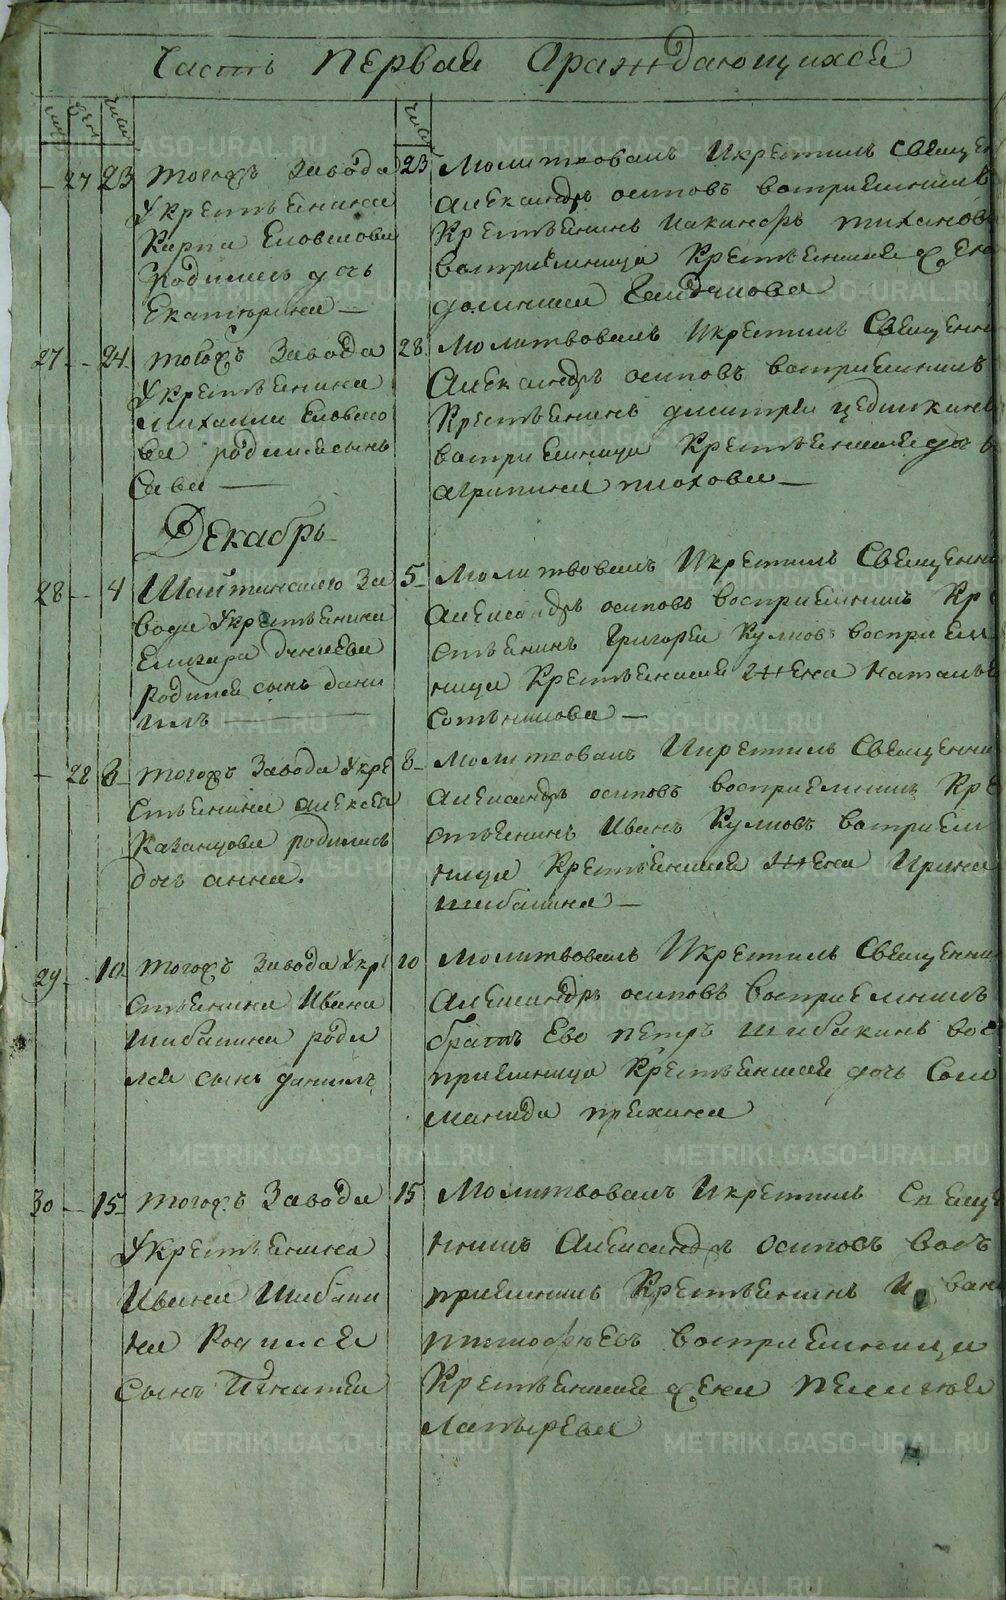 Часть первая о раждающихся
27 23 тогожъ завода
укрестьенина
Карпа Еловскова
родилась дочь
Екатерина
23 Молитвовалъ Икрестилъ Свещен
Александръ осиповъ восприемникъ
Крестьенинъ тиханов
восприемница Крестьенская жена
27 24 тогожъ Завода
укрестьенина
михаила Еловско
ва родилсясынъ
Сава
28 Молитвовалъ Икрестилъ Свещенни
Александръ осиповъ восприемникъ
Крестьенинъ дмитрей
восприемница Крестьенская дочь
агрипина плохова
Декабрь
28 4 Шайтанскаго За
вода укрестьенина
родился сынъ дани
илъ
5 Молитвовалъ Икрестилъ Свещенни
Александръ осиповъ восприемникъ Кр
стьенинъ Григорей Куликовъ восприем
ница Крестьенская жена Наталья
Сотьникова
28 8 тогожъ Завода укре
стьенина алексея
Казанцова родилась
дочь анна.
8 Молитвовалъ Икрестилъ Свещенни
Александръ осиповъ восприемникъ Кре
стьенинъ Иванъ Куликовъ восприем
ница Крестьенская жена Ирина
шибакина
29 10 тогожъ завода укре
стьенина Ивана
шибакина роди
лся сынъ данилъ
10 Молитвовалъ Икрестилъ Свещенни
Александръ осиповъ восприемникъ
братъ ево петръ шибакинъ вос
приемница Крестьенская дочь Соло
манида
30 15 тогожъ Завода
укрестьенина
Ивана Шибаки
на Родился
сынъ Игнатей
15 Молитвовалъ Икрестилъ Свещ
нникъ Александръ осиповъ восъ
приемникъ Крестьенинъ Иван
восприемница
Крестьенская жена пелагея
Латырева
METRIKI.GASO-URAL.RU